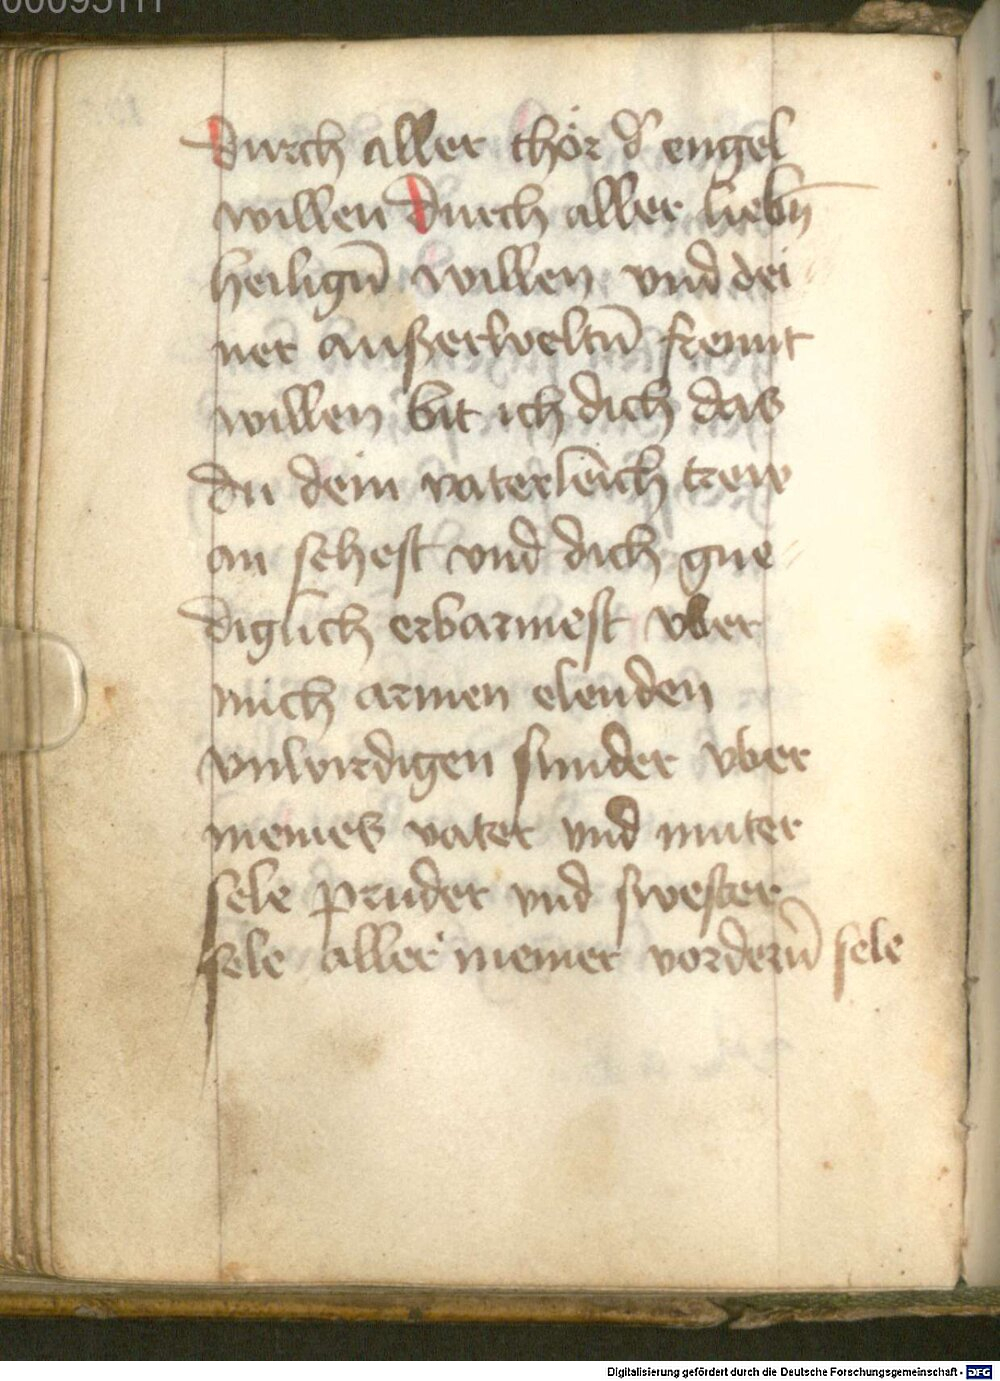 durch aller thör d̕ engel
willen durch aller liebn̄
heilign̄ willen vnd dei
ner außerweltn̄ frewnt
willen bit ich dich das
du dein vaterleich trew
an sehest vnd dich gne
diglich erbarmest vber
mich armen elenden
vnwirdigen sunder vber
meines vater vnd muter
sele pruder vnd swester
sele aller meiner vordern̄ sele
Digitalisierung gefördert durch die Deutsche Forschungsgemeinschaft - DFG